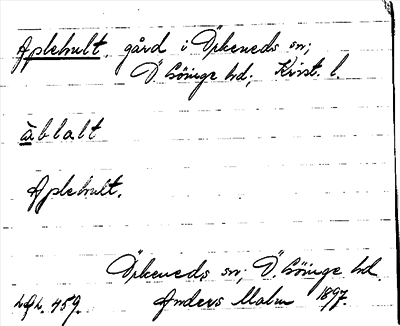 Aplehult, gård i Örkeneds sn;
Ö. Göinge hd; Krist. l.
àblalt
Aplehult.
Örkeneds sn, Ö. Göinge hd.
459. Anders Malm 1897.